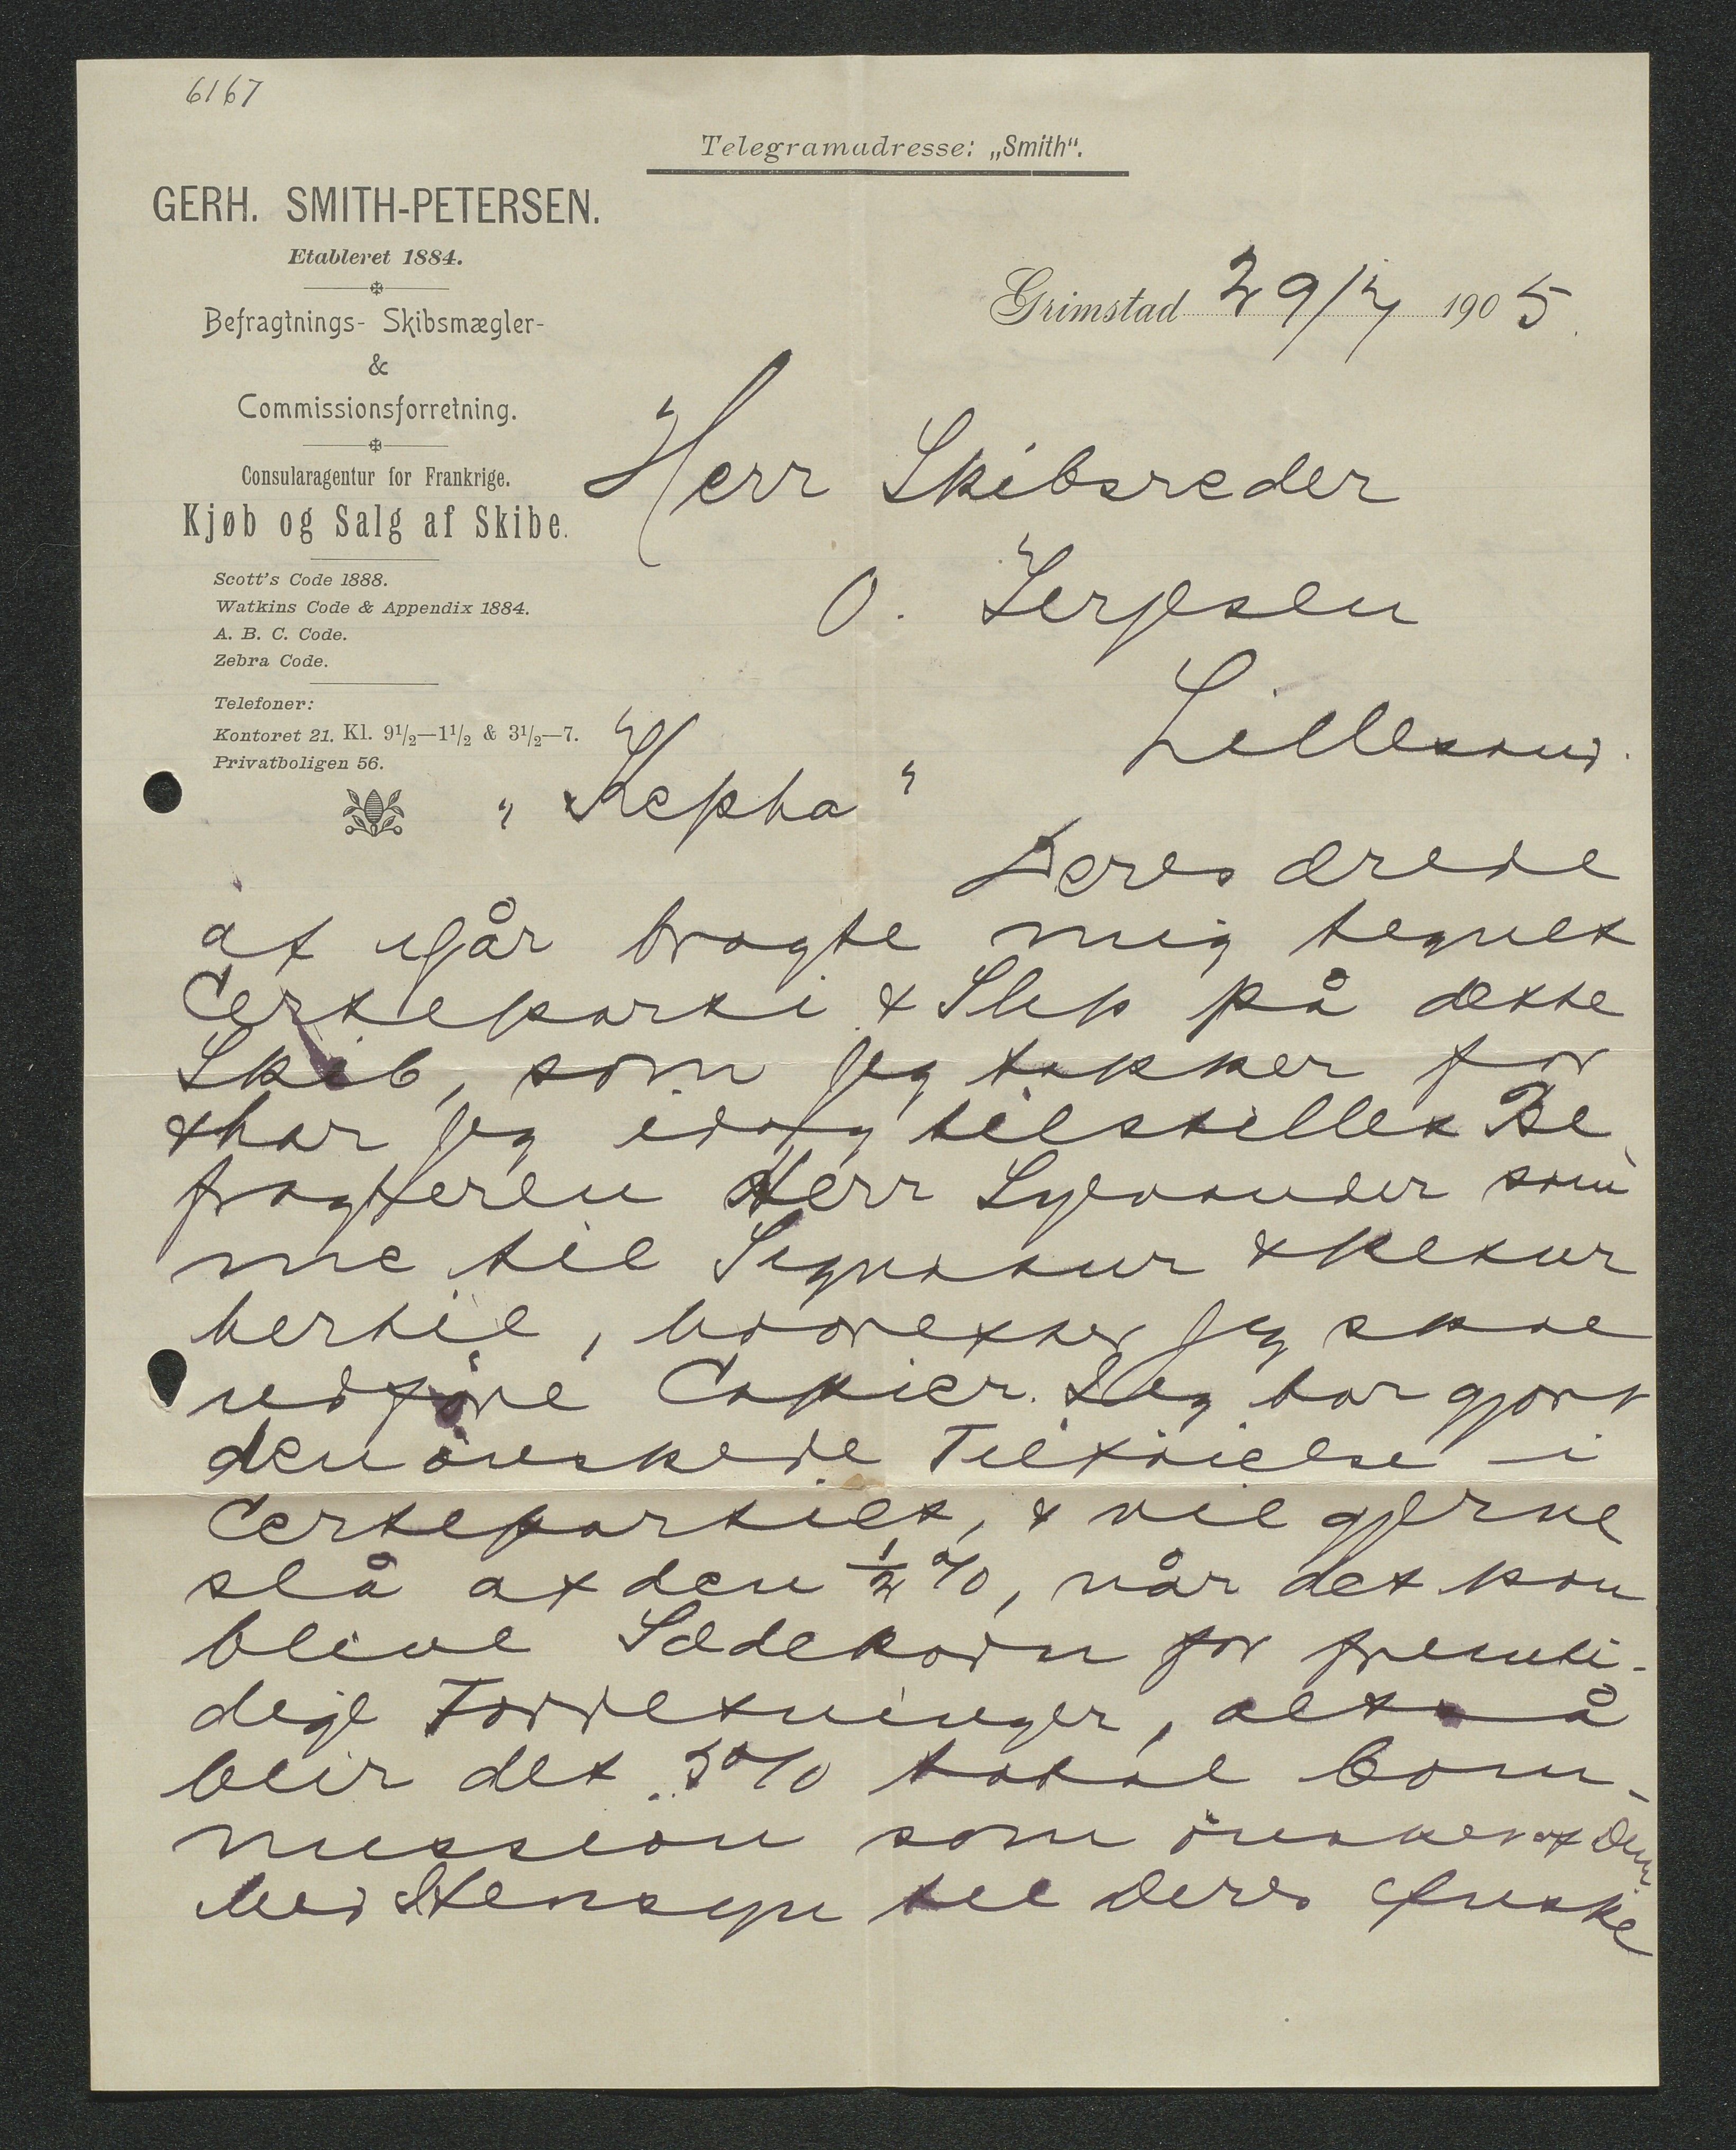 6167
Telegramadresse: „Smith“.
GERH. SMITH-PETERSEN.
Etableret 1884.
Befragtnings- Skibsmægler-
&
Commissionsforretning.
Consularagentur for Frankrige.
Kjøb og Salg af Skibe.
Scott's Code 1888.
Watkins Code & Appendix 1884.
A. B. C. Code.
Zebra Code.
Telefoner:
Kontoret 21. Kl. 9½—1½ & 3½—7.
Privatboligen 56.
Grimstad 29/7 1905.
Herr Skibsreder
O. Terjesen
Lillesand.
"Kepha"
Deres ærede
af igår bragte mig tegnet
Certeparti & Slip på dette
Skib, som jeg takker for
& har jeg idag tilstillet Be
fragteren Herr Sylvander sam
me til Signatur & Retur
hertil, hvorefter jeg skal
udføre Copier. Jeg har gjort
den ønskede Tilføielse i
Certepartiet, & vil gjerne
slå af den ½ %, når det kan
blive Sædekorn for fremti-
dige Forretninger, altså
blir det 3% total Com-
mission som ønsket af Dem
Med Hensyn til Deres Ønske